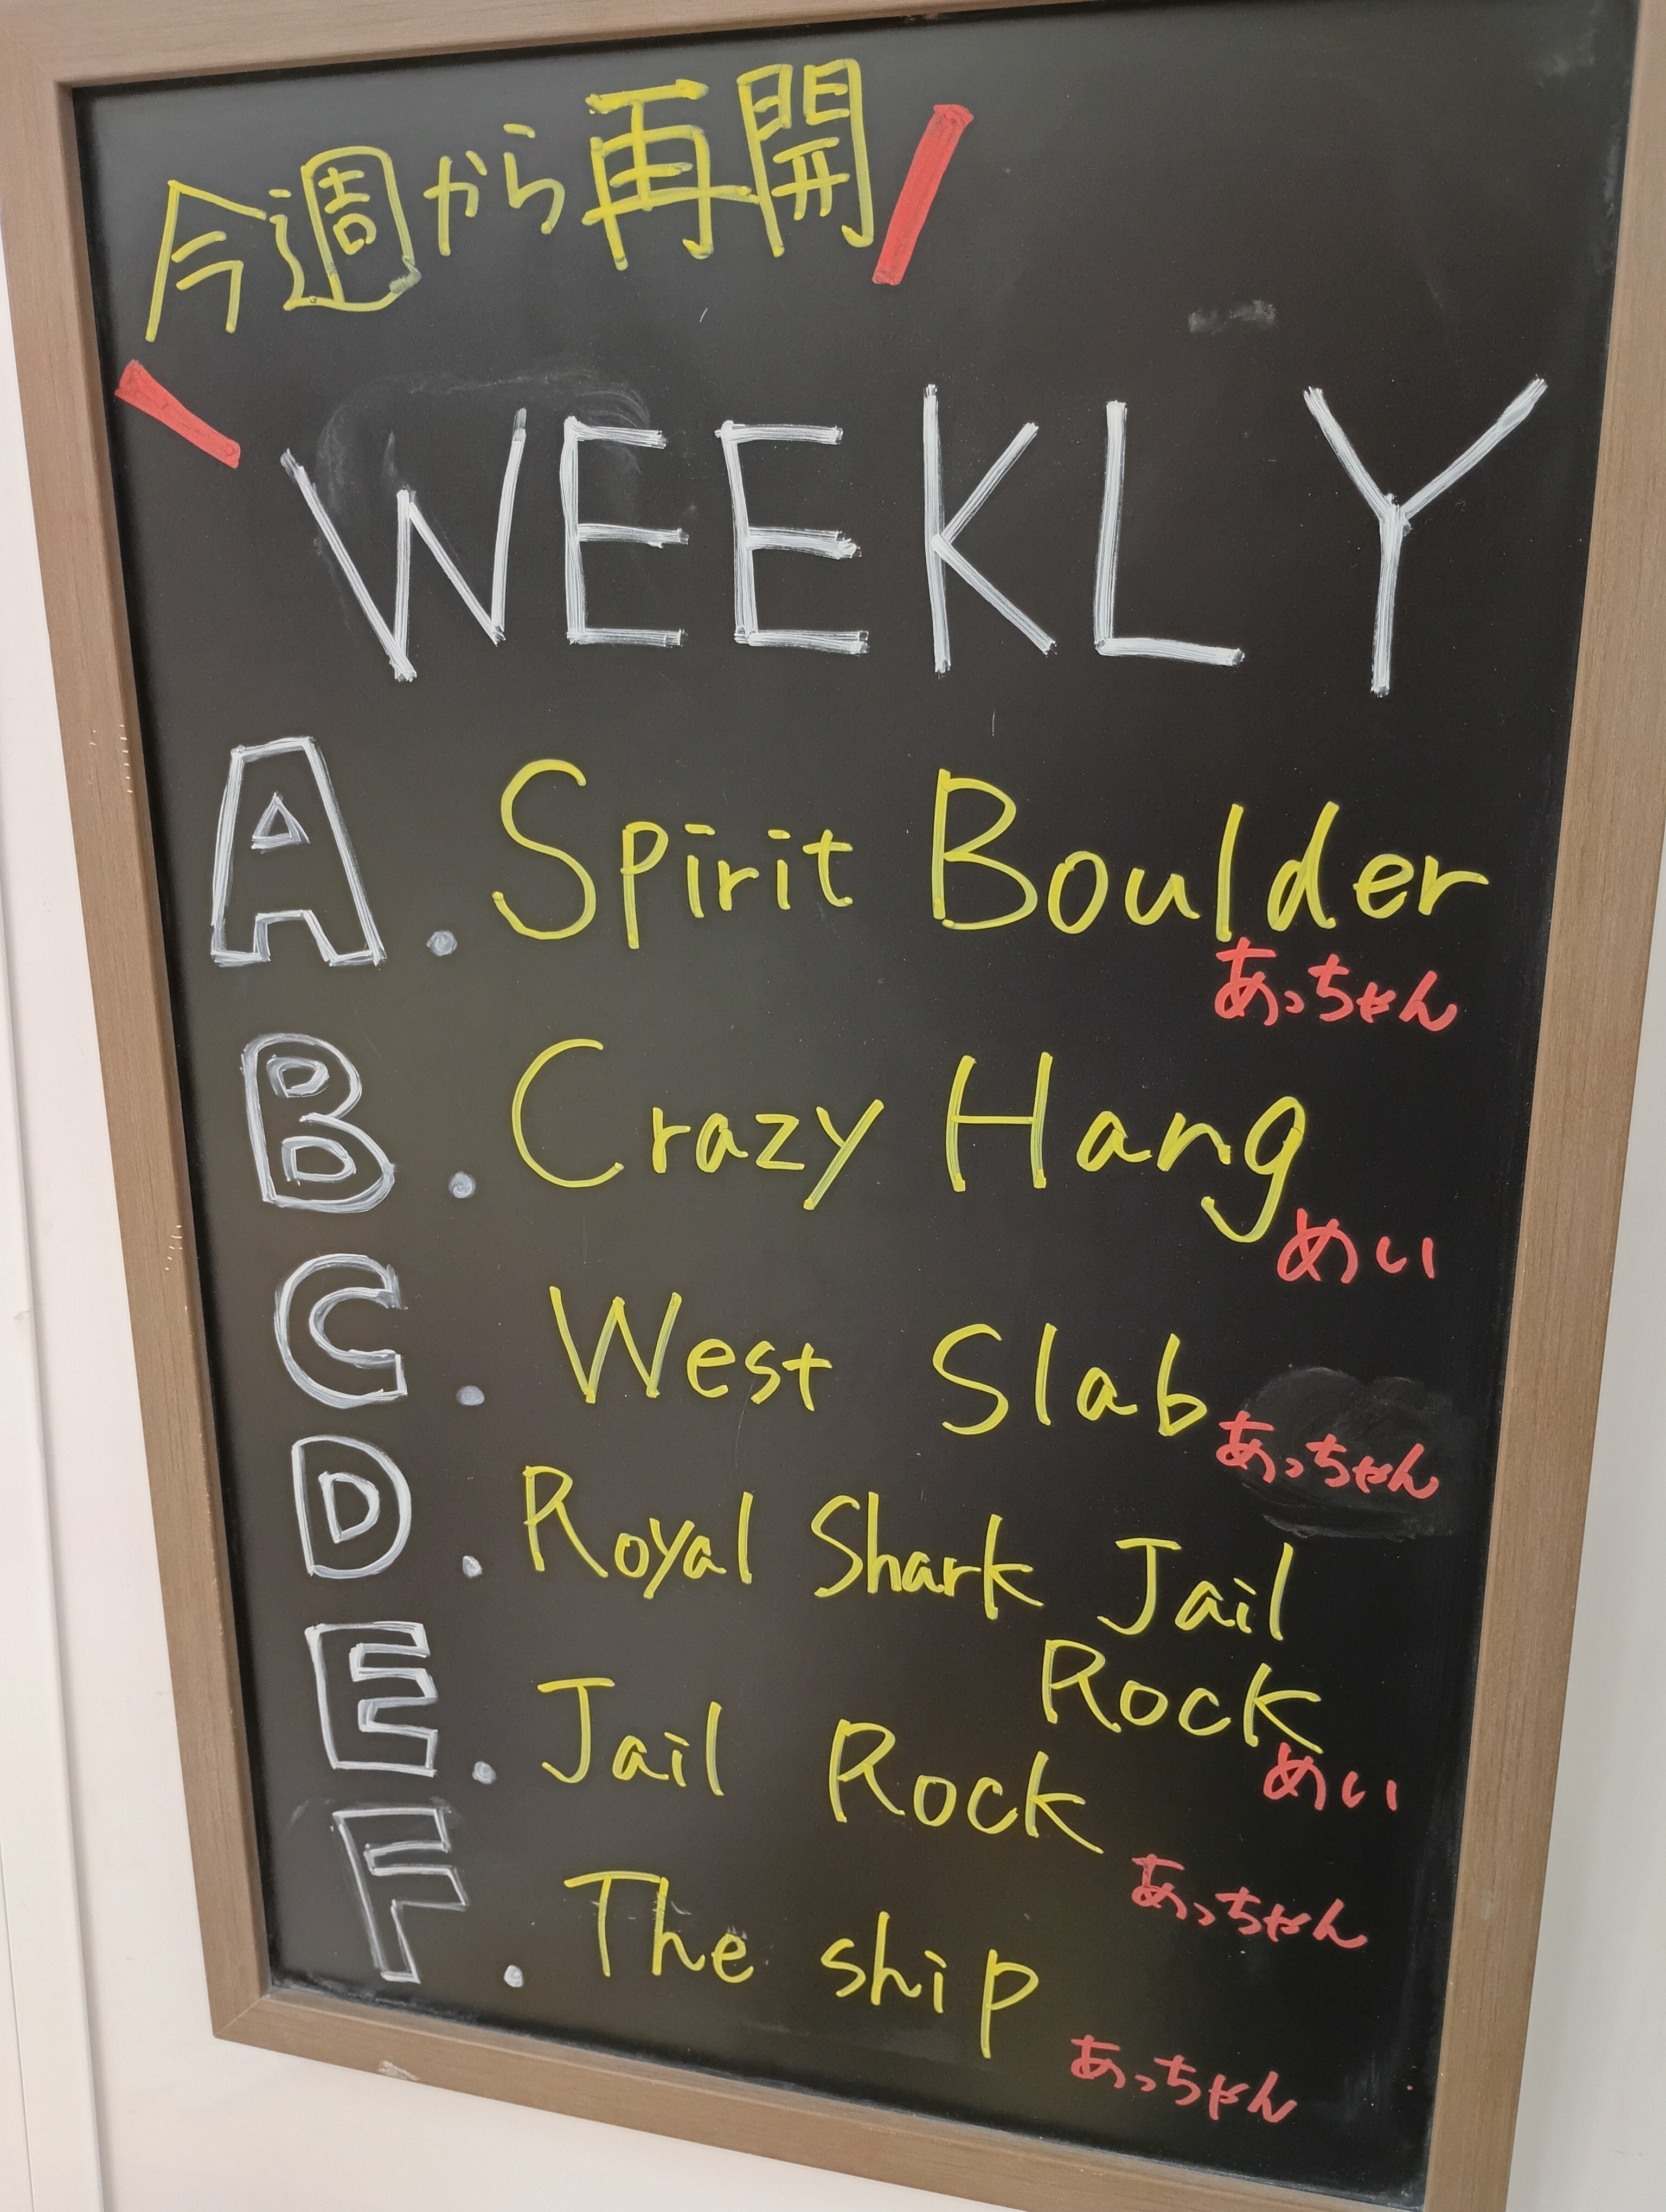 今週から再開
WEEKLY
A. Spirit Boulder
あっちゃん
B. Crazy Hang
めい
C. West Slab
あっちゃん
D. Royal Shark Jail
Rock
めい
E. Jail Rock
あっちゃん
F. The ship
あっちゃん